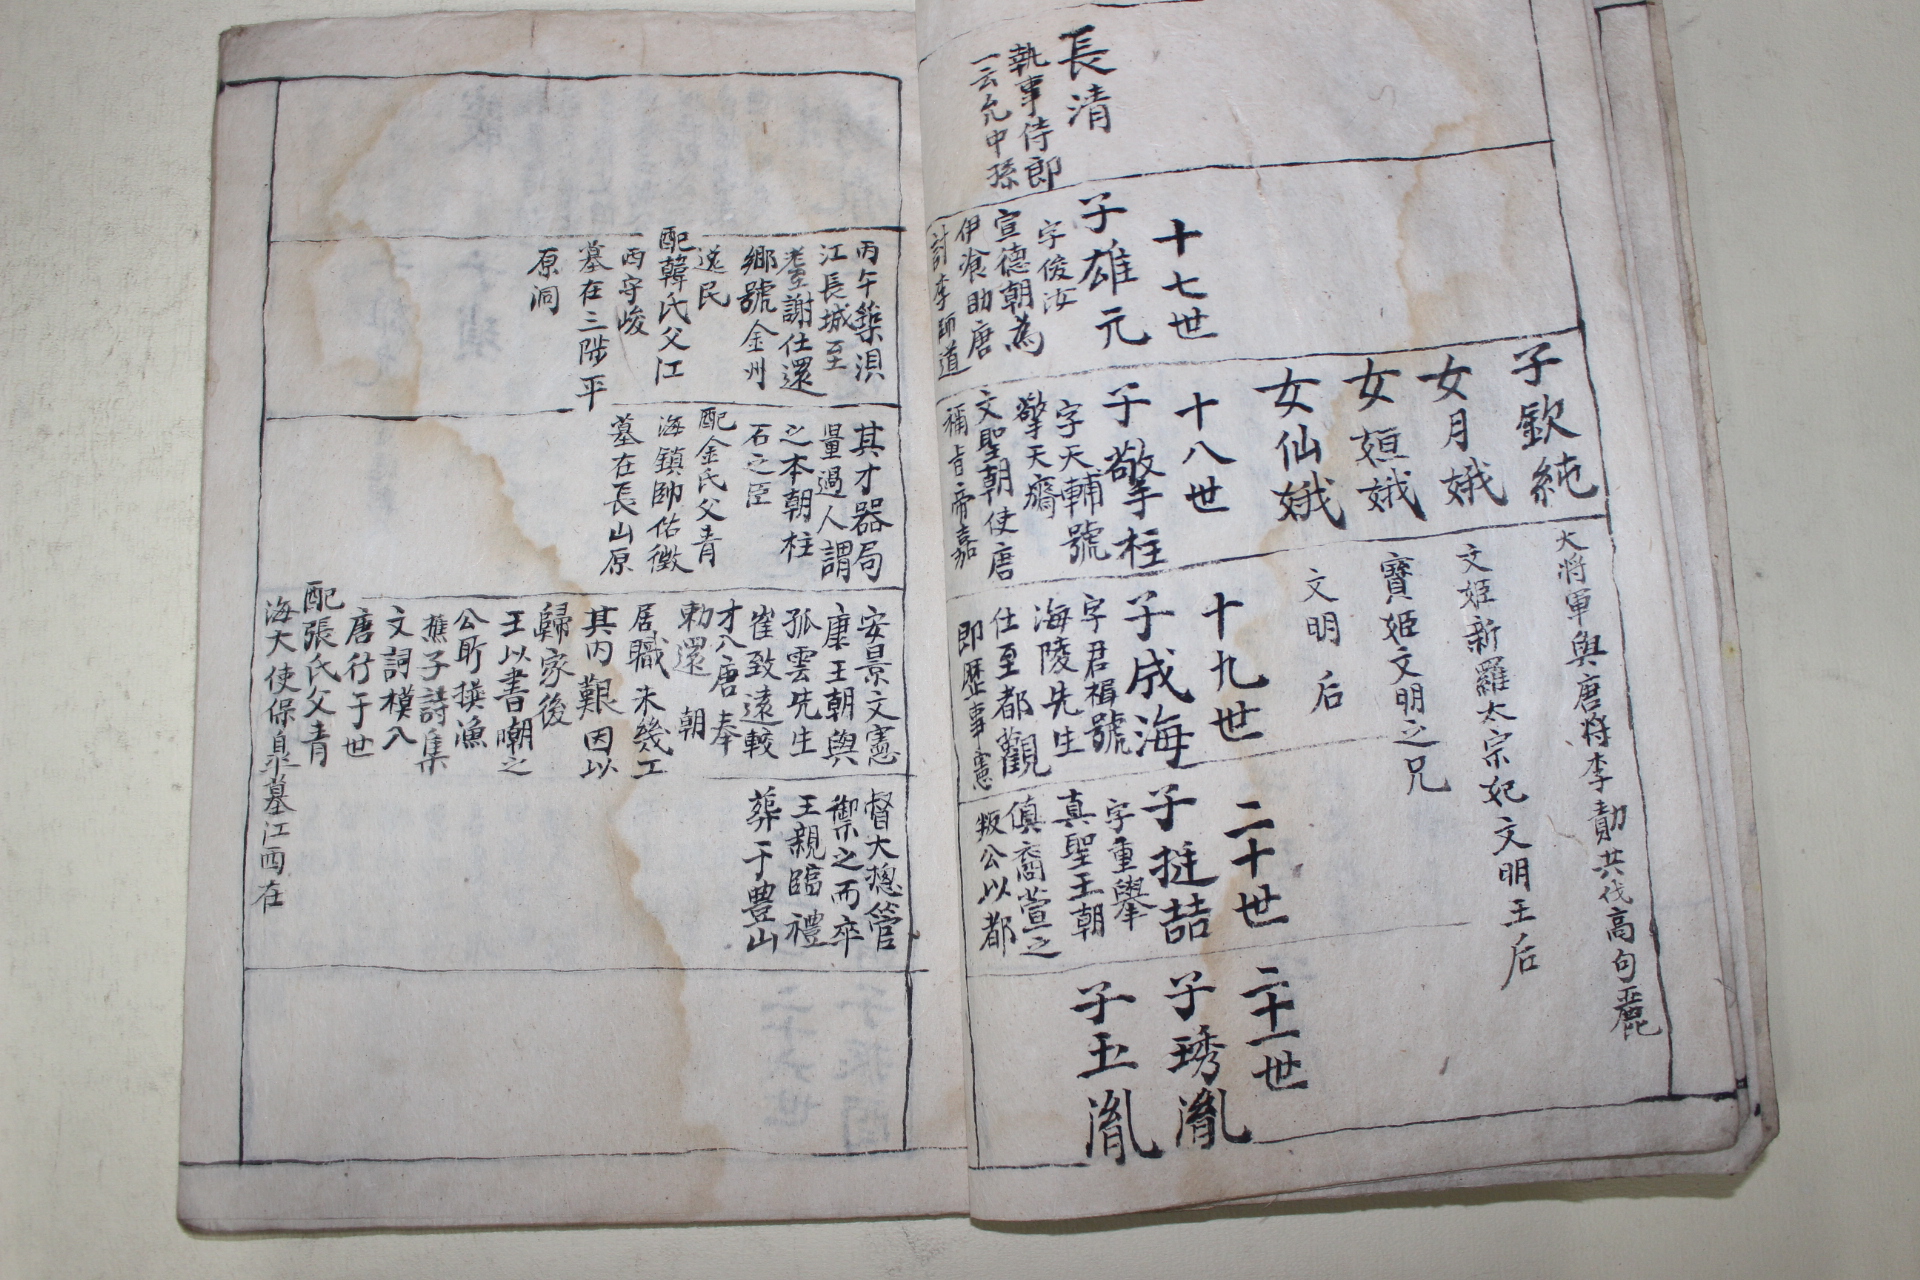 長清
執事侍郎
一云允中孫
十七世
子雄元
字俊汝
宣德朝為
伊飡助唐
討李師道
子欽純
女月娥
女姮娥
女仙娥
十八世
子擎柱
字天輔號
擎天齋
文聖朝使唐
稱旨帝嘉
大將軍與唐將李勣共伐高句麗
文姬新羅太宗妃文明王后
寶姬文明之兄
文明后
十九世
子成海
字君楫號
海陵先生
仕至都觀
即歷事憲
二十世
子挺喆
字重擧
真聖王朝
甄萱之
叛公以都
二十一世
子琇胤
子玉胤
丙午築浿
江長城至
耋謝仕還
鄉號金州
逸民
配韓氏父江
西守峻
墓在三陟平
原洞
其才器局
量過人謂
之本朝柱
石之臣
配金氏父青
海鎮帥佑徵
墓在長山原
安景文憲
康王朝與
孤雲先生
崔致遠較
才入唐奉
勅還朝
居職未幾工
其內艱因以
歸家後
王以書嘲之
公所撰漁
樵子詩集
文詞模入
唐行于世
配張氏父青
海大使保皐墓江西在
督大摠管
禦之而卒
王親臨禮
葬于豊山